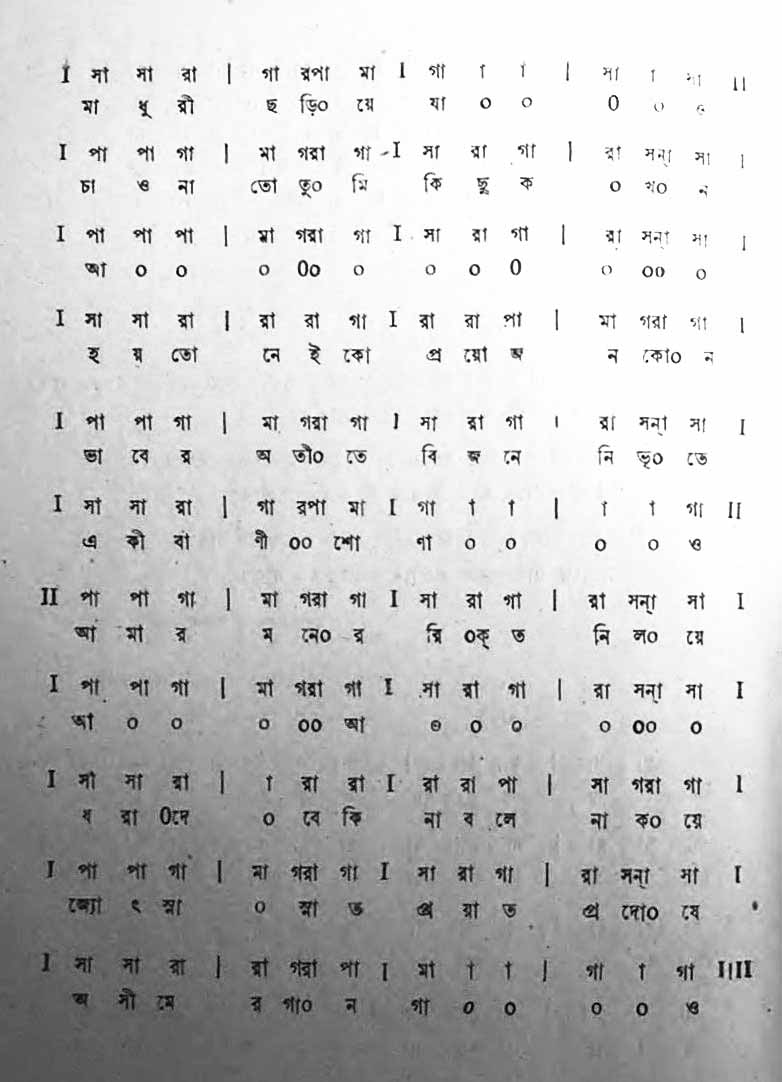 I সা সা রা | গা রপা মা I গা া া | সা া সা II
মা ধু রী ছ ড়ি০ য়ে যা ০ ০ ০ ০ ও
I পা পা গা | মা গরা গা I সা রা গা | রা সন্া সা I
চা ও না তো তু০ মি কি ছু ক ০ খ০ ন
I পা পা পা | মা গরা গা I সা রা গা | রা সন্া সা I
আ ০ ০ ০ ০০ ০ ০ ০ ০ ০ ০০ ০
I সা সা রা | রা রা গা I রা রা পা | মা গরা গা I
হ য় তো নে ই কো প্র য়ো জ ন কো০ ন
I পা পা গা | মা গরা গা I সা রা গা | রা সন্া সা I
ভা বে র অ তী০ তে বি জ নে নি ভৃ০ তে
I সা সা রা | গা রপা মা I গা া া | া া গা II
এ কী বা ণী ০০ শো ণা ০ ০ ০ ০ ও
II পা পা গা | মা গরা গা I সা রা গা | রা সন্া সা I
আ মা র ম নে০ র রি ০ক্ ত নি ল০ য়ে
I পা পা গা | মা গরা গা I সা রা গা | রা সন্া সা I
আ ০ ০ ০ ০০ আ ০ ০ ০ ০ ০০ ০
I সা সা রা | া রা রা I রা রা পা | সা গরা গা I
ধ রা ০দে ০ বে কি না ব লে না ক০ য়ে
I পা পা গা | মা গরা গা I সা রা গা | রা সন্া সা I
জ্যো ৎ স্না ০ স্না ত প্র য়া ত প্র দো০ ষে
I সা সা রা | রা গরা পা I মা া া | গা া গা IIII
অ সী মে র গা০ ন গা ০ ০ ০ ০ ও